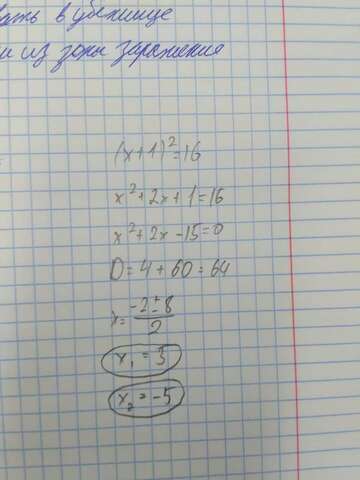 в убежище
и из зоны заражения
(x+1)²=16
x²+2x+1=16
x²+2x-15=0
D=4+60=64
x=\frac{-2±8}{2}
x₁=3
x₂=-5